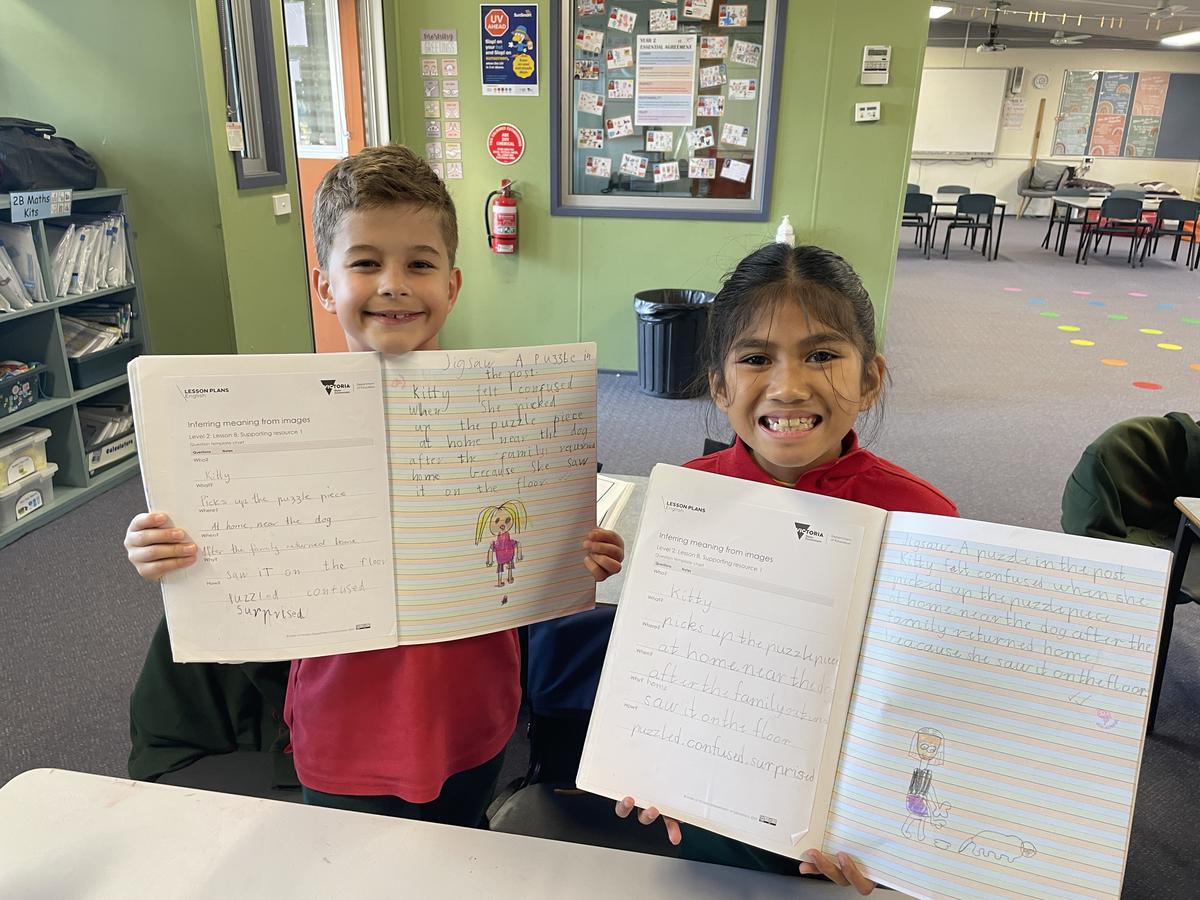 UV
AHEAD
SunSmart
YEAR 2
ESSENTIAL AGREEMENT
2B Maths
Kits
Calculators
LESSON PLANS
English
VICTORIA
Department
of Education
Inferring meaning from images
Level 2: Lesson 8, Supporting resource 1
Question template chart
Questions Notes
Who?
Kitty
What?
Picks up the puzzle piece
At home, near the dog
When?
After the family returned home
saw iT on the floor
How?
puzzled confused
surprised
Jigsaw A puzzle in
the post.
Kitty felt confused
when she picked
up the puzzle piece
at home near the dog
after the family returned
home because she saw
it on the floor
LESSON PLANS
English
VICTORIA
Department
of Education
Inferring meaning from images
Level 2: Lesson 8, Supporting resource 1
Question template chart
Questions Notes
Who?
Kitty
What?
picks up the puzzle piece
Where?
at home near the
When?
after the family
Why? home
saw it on the floor
How?
puzzled. confused. surprised
Jigsaw. A puzzle in the post
Kitty felt confused when she
picked up the puzzle piece
at home near the dog after the
family returned home
because she saw it on the floor